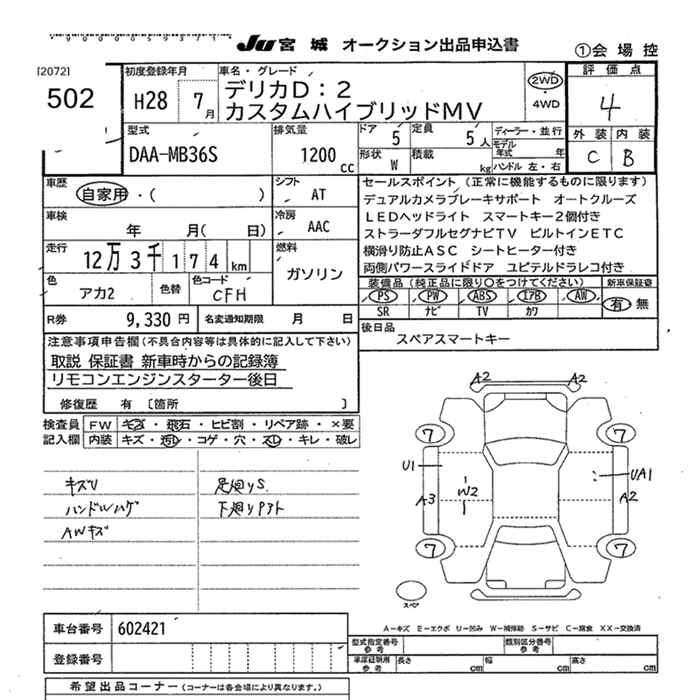 Ju 宮城 オークション出品申込書
①会場控
[2072]
502
初度登録年月
H28 7月
車名・グレード
デリカD:2
カスタムハイブリッドMV
2WD
4WD
評価点
4
外装 内装
C B
型式
DAA-MB36S
排気量
1200 cc
ドア 5
定員 5人
ディーラー・並行
形状 W
積載 kg
モデル年式 年
ハンドル 左・右
車歴
自家用・( )
シフト AT
車検
年 月( 日)
冷房 AAC
走行
12万3千174km
燃料
ガソリン
色
アカ2
色替
色コード
CFH
R券 9,330円
名変通知期限 月 日
セールスポイント (正常に機能するものに限ります)
デュアルカメラブレーキサポート オートクルーズ
LEDヘッドライト スマートキー2個付き
ストラーダフルセグナビTV ビルトインETC
横滑り防止ASC シートヒーター付き
両側パワースライドドア ユピテルドラレコ付き
装備品(純正品に限り○をつけてください)
新車保証書
PS PW ABS エアB AW
SR ナビ TV カワ
有 無
後日品
スペアスマートキー
注意事項申告欄(不具合内容等は具体的に記入して下さい)
取説 保証書 新車時からの記録簿
リモコンエンジンスターター後日
修復歴 有 〔箇所 〕
検査員記入欄
FW キズ・飛石・ヒビ割・リペア跡・×要
内装 キズ・汚れ・コゲ・穴・スレ・キレ・破レ
キズU
ハンドルハゲ
AWキズ
足廻りS
下廻りサビト
A2 A2
7 7
U1 UA1
A3 W2 A2
7 7
スペア
A-キズ E-エクボ U-凹み W-補修跡 S-サビ C-腐食 XX-交換済
車台番号 602421
登録番号
型式指定番号 参考
類別区分番号 参考
車庫証明用参考
長さ cm 幅 cm 高さ cm
希望出品コーナー(コーナーは各会場により異なります。)